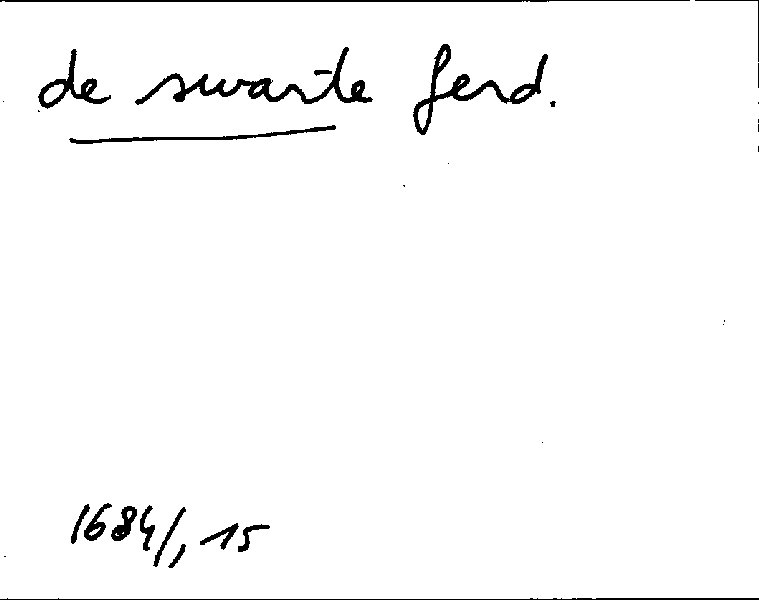 de swarte ferd.
1684/, 15